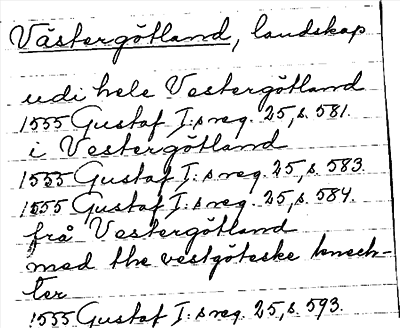 Västergötland, landskap
udi hele Vestergötland
1555 Gustaf I:s reg. 25, s. 581.
i Vestergötland
1555 Gustaf I:s reg. 25, s. 583.
1555 Gustaf I:s reg. 25, s. 584.
från Vestergötland
med the vestgöteske knech-
ter
1555 Gustaf I:s reg. 25, s. 593.